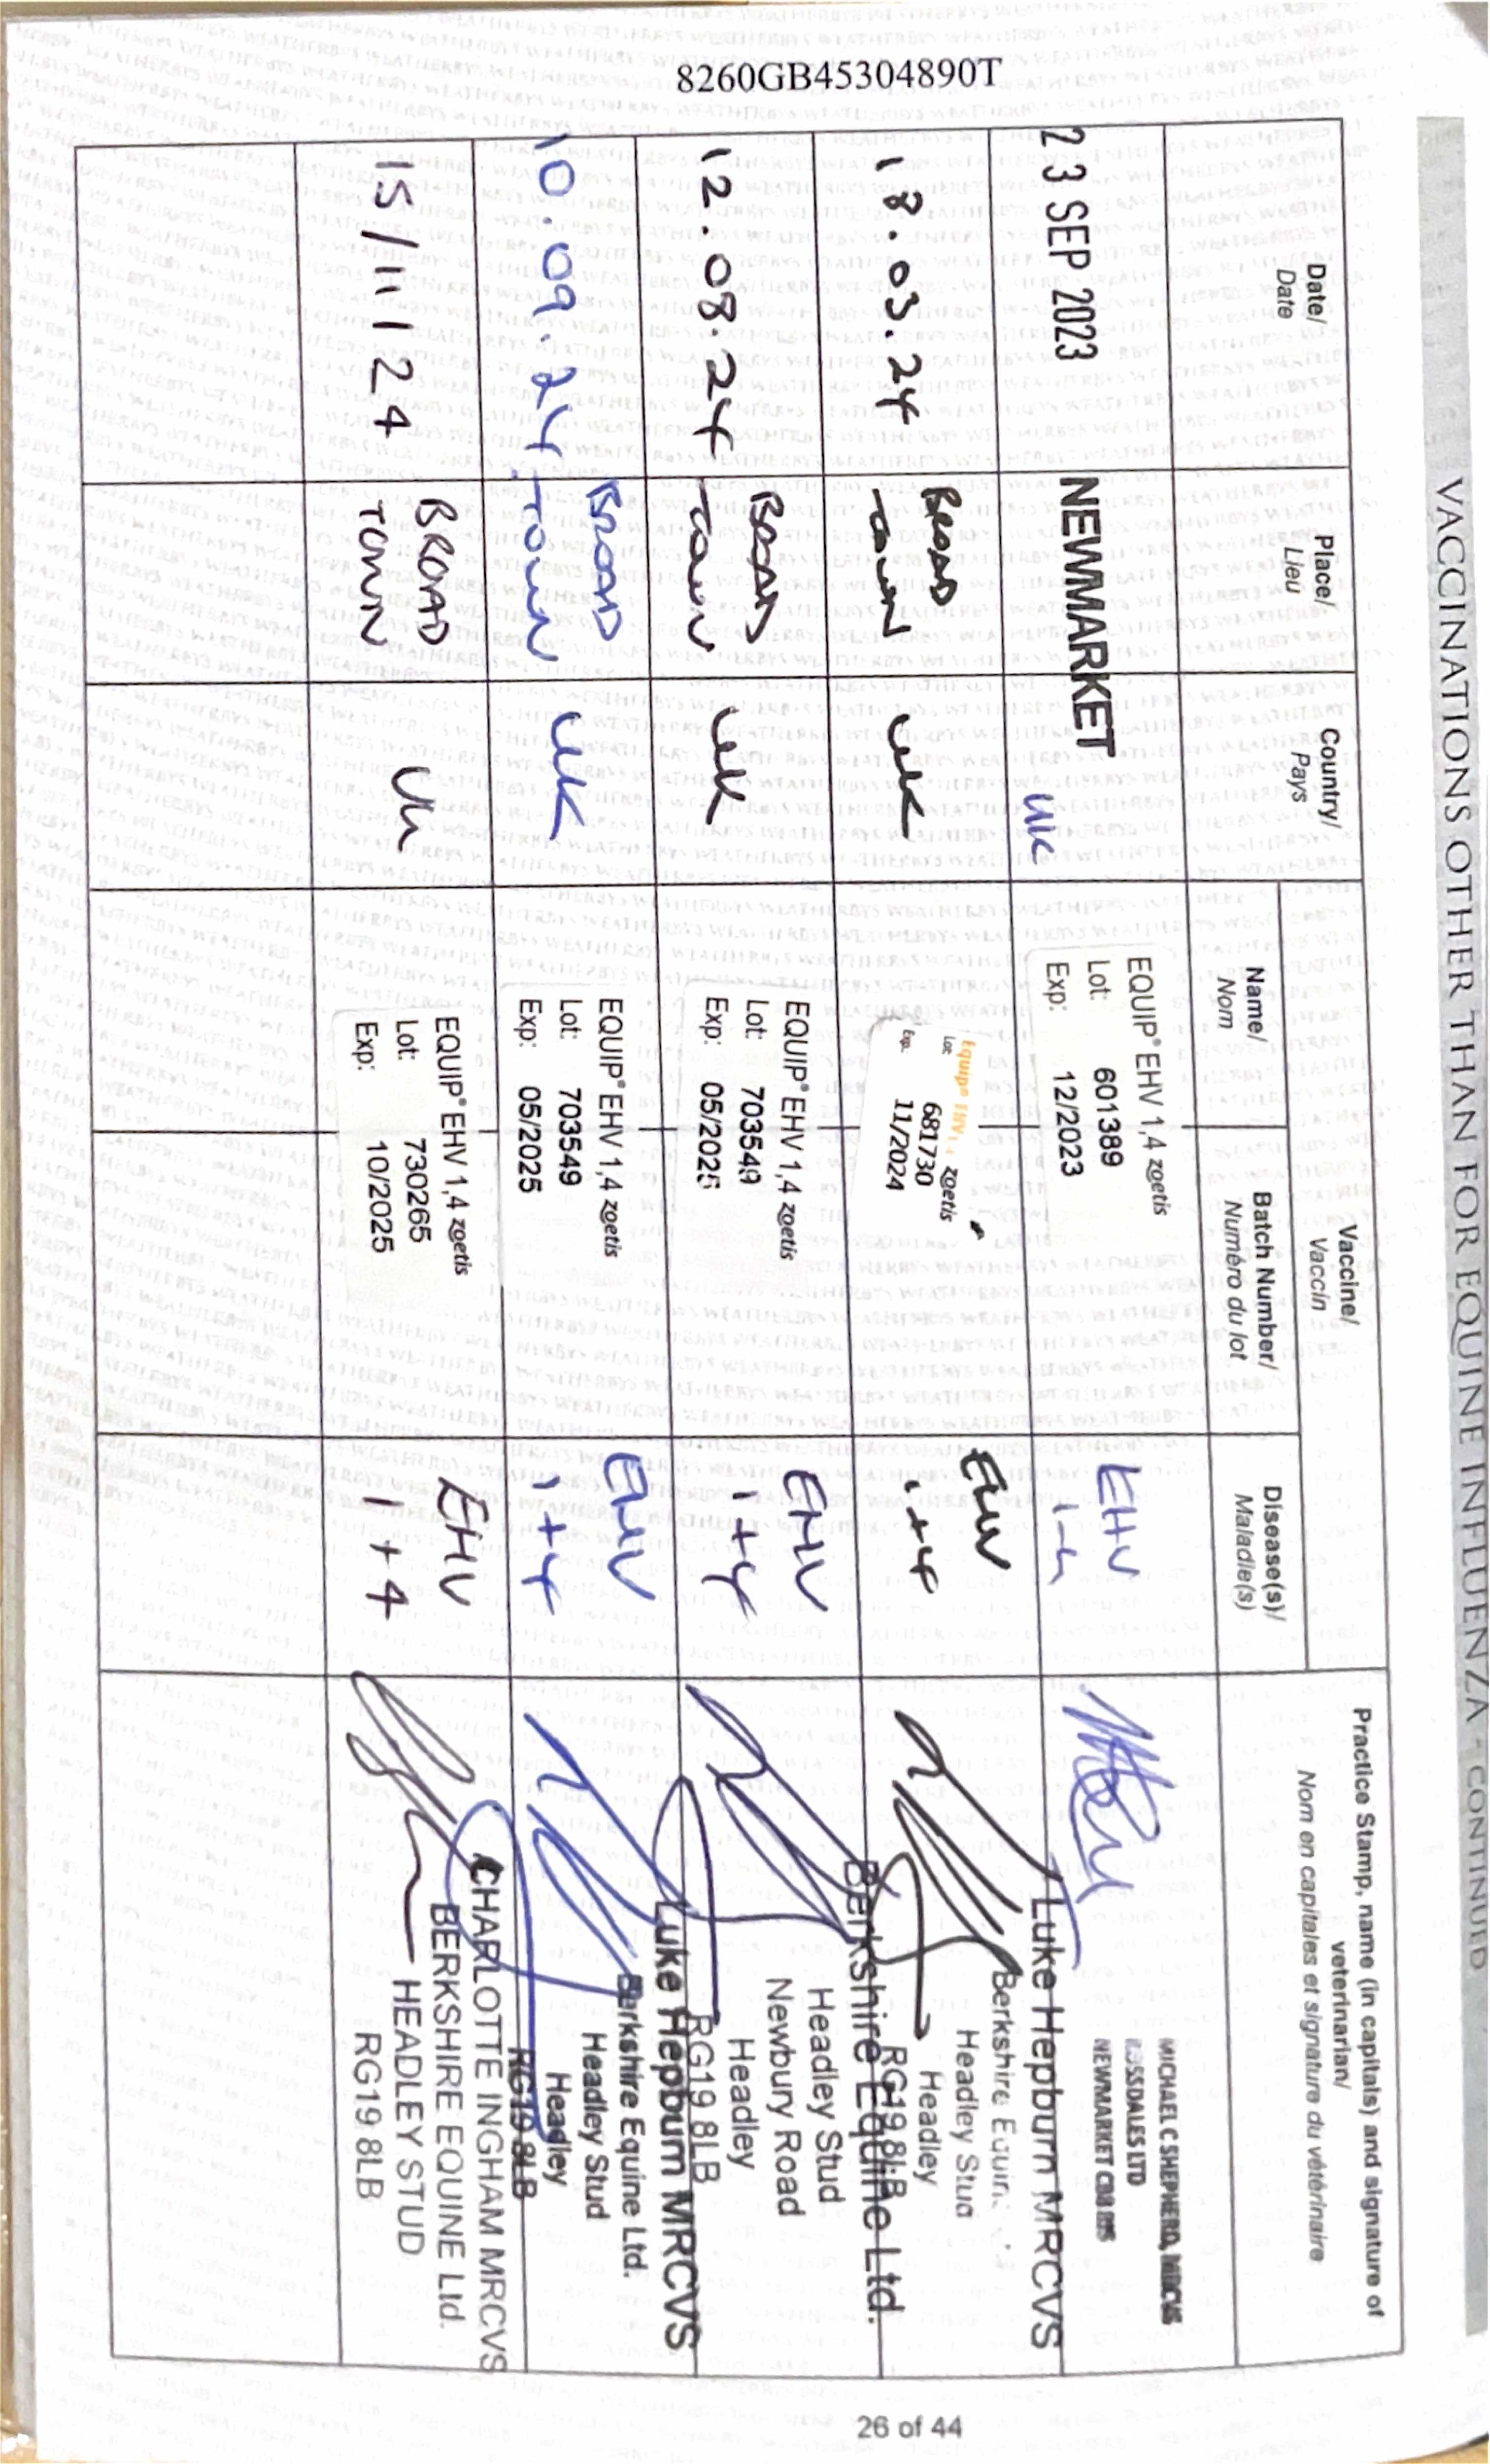 VACCINATIONS OTHER THAN FOR EQUINE INFLUENZA - CONTINUED
8260GB45304890T
Date/
Date
Place/
Lieu
Country/
Pays
Vaccine/
Vaccin
Name/
Nom
Batch Number/
Numéro du lot
Disease(s)/
Maladie(s)
Practice Stamp, name (in capitals) and signature of
veterinarian/
Nom en capitales et signature du vétérinaire
23 SEP 2023
NEWMARKET
UK
EQUIP® EHV 1,4 zoetis
Lot: 601389
Exp: 12/2023
EHV
1-4
MICHAEL C SHEPHERD, MRCVS
ROSSDALES LTD
NEWMARKET
18.03.24
BROAD
TOWN
UK
Equip® EHV 1, zoetis
Lot: 681730
Exp: 11/2024
EHV
1+4
Luke Hepburn MRCVS
Berkshire Equine
Headley Stud
Headley
RG19 8LB
12.08.24
BROAD
TOWN
UK
EQUIP® EHV 1,4 zoetis
Lot: 703549
Exp: 05/2025
EHV
1+4
Berkshire Equine Ltd.
Headley Stud
Newbury Road
Headley
RG19 8LB
10.09.24
BROAD
TOWN
UK
EQUIP® EHV 1,4 zoetis
Lot: 703549
Exp: 05/2025
EHV
1+4
Luke Hepburn MRCVS
Berkshire Equine Ltd.
Headley Stud
Headley
RG19 8LB
15/11/24
BROAD
TOWN
UK
EQUIP® EHV 1,4 zoetis
Lot: 730265
Exp: 10/2025
EHV
1+4
CHARLOTTE INGHAM MRCVS
BERKSHIRE EQUINE Ltd.
HEADLEY STUD
RG19 8LB
26 of 44